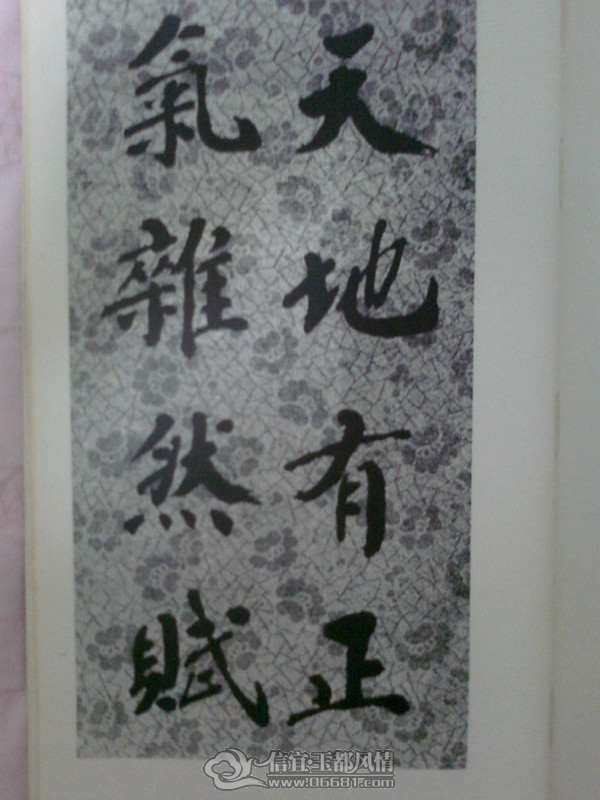 天地有正
氣雜然賦
信宜·玉都风情
www.06681.com